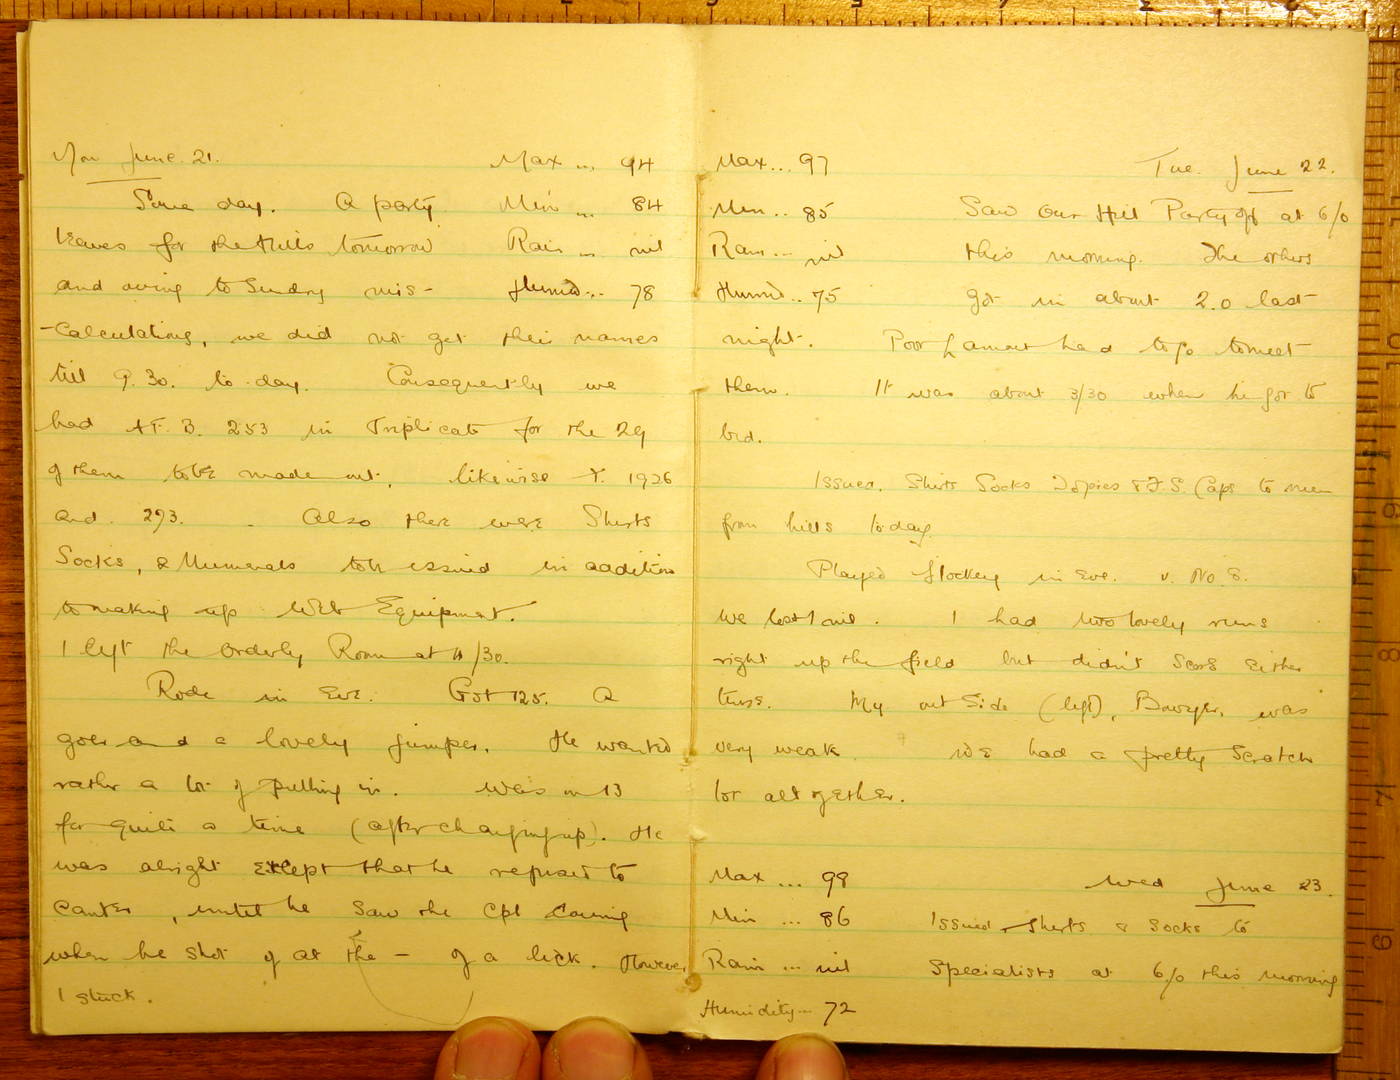 Mon June. 21. Max ... 94
Same day. A party Min ... 84
leaves for the Hills tomorrow Rain ... nil
and owing to Sundry mis- Humid... 78
-calculations, we did not get their names
till 9.30. to-day. Consequently we
had A.F. B. 253 in Triplicate for the 29
of them to be made out, likewise Y. 1926
and 293. Also there were Shirts
Socks, & Numerals to be issued in addition
to making up Web Equipment.
I left the Orderly Room at 11/30.
Rode in Eve. Got 125. A
goer and a lovely jumper. He wanted
rather a lot of pulling in. Was on 13
for quite a time (after changing up). He
was alright except that he refused to
canter, until he saw the Cpl coming
when he shot off at the - of a lick. However
I stuck.
Max... 97 Tue. June 22.
Min .. 85 Saw our Hill Party off at 6/0
Rain... nil this morning. The others
Humid.. 75 got in about 2.0 last
night. Poor Lamont had to go to meet
them. It was about 3/30 when he got to
bed.
Issued. Shirts Socks Topies & F.S. Caps to men
from hills today.
Played Hockey in Eve. v. No. 8.
We lost 1 nil. I had two lovely runs
right up the field but didn't score either
time. My outside (left), Bowyer, was
very weak. We had a pretty scratch
lot altogether.
Max ... 98 Wed June 23.
Min ... 86 Issued Shirts & Socks to
Rain ... nil Specialists at 6/0 this morning
Humidity... 72